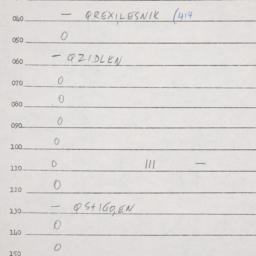 040 — QREXILESNIK (414
050 0
060 — QZIDLKN
070 0
080 0
090 0
100 0
110 0 III —
120 0
130 — QSTIGO,EN
140 0
150 0